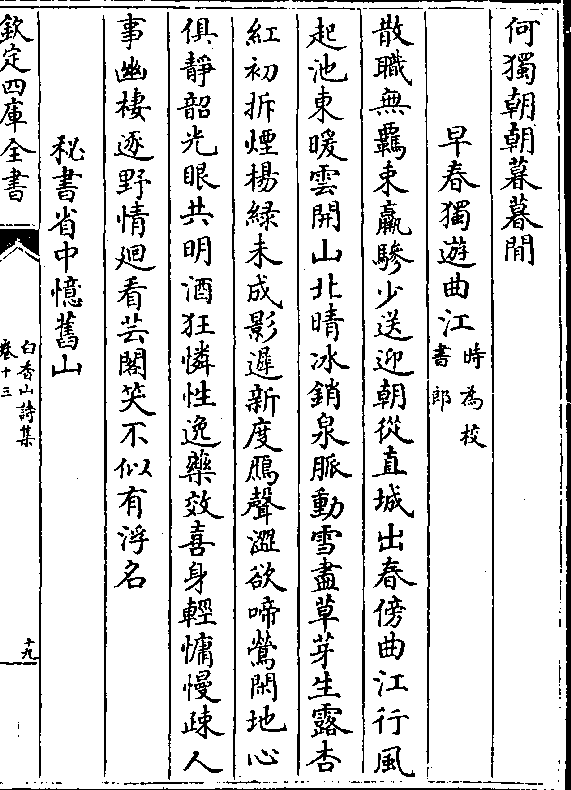 何獨朝朝暮暮間
早春獨遊曲江時為校書郎
散職無羈束羸驂少送迎朝從直城出春傍曲江行風
起池東暖雲開山北晴冰銷泉脈動雪盡草芽生露杏
紅初拆煙楊緑未成影遲新度鴈聲澀欲啼鶯閑地心
俱靜韶光眼共明酒狂憐性逸藥效喜身輕慵慢疎人
事幽棲逐野情廻看芸閣笑不似有浮名
秘書省中憶舊山
欽定四庫全書
白香山詩集
卷十三
十九